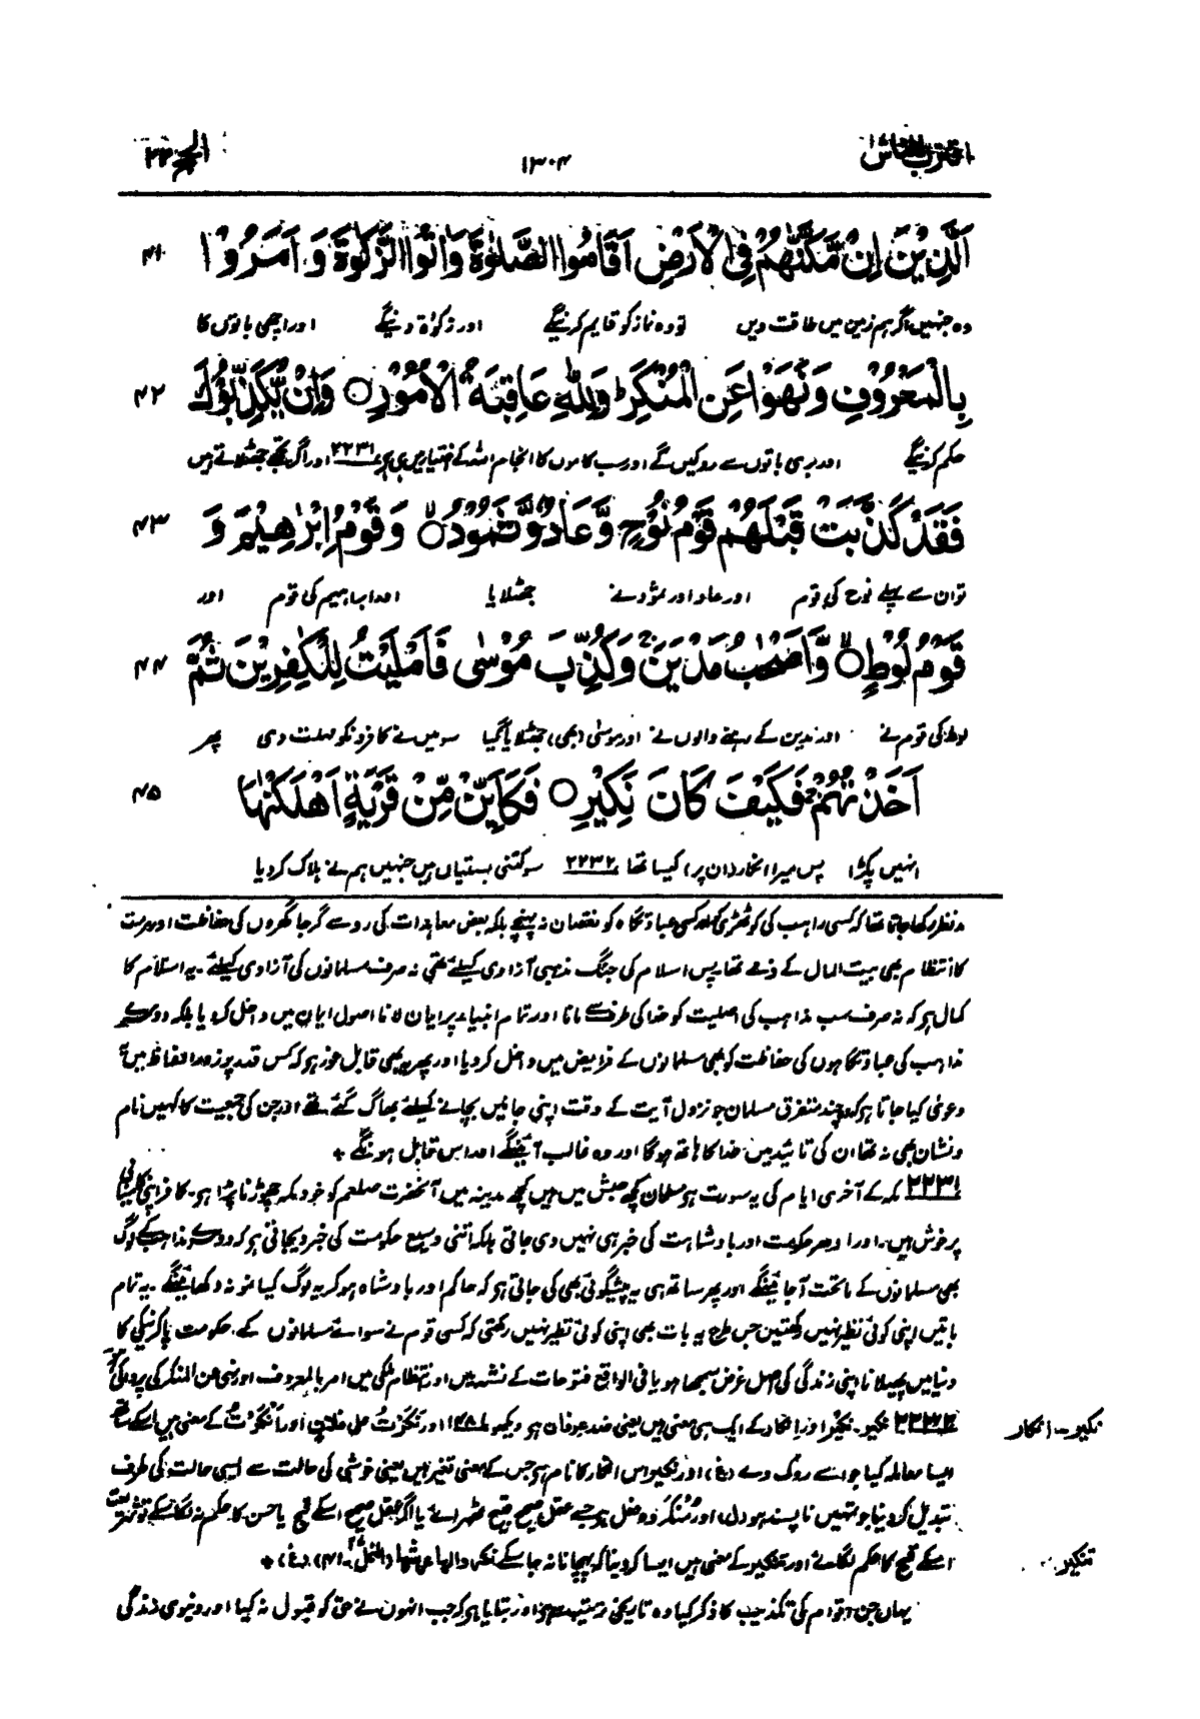 اقترب للناس ۱۳۰۴ الحج ۲۲
اَلَّذِیْنَ اِنْ مَّكَّنّٰهُمْ فِی الْاَرْضِ اَقَامُوا الصَّلٰوةَ وَاٰتَوُا الزَّكٰوةَ وَ اَمَرُوْا ۴۱
وہ جنہیں اگر ہم زمین میں طاقت دیں تو وہ نماز کو قایم کرینگے اور زکوٰۃ دینگے اور اچھی باتوں کا
بِالْمَعْرُوْفِ وَنَهَوْا عَنِ الْمُنْكَرِ ؕ وَلِلّٰهِ عَاقِبَةُ الْاُمُوْرِ ○ وَاِنْ یُّكَذِّبُوْكَ ۴۲
حکم کرینگے اور بری باتوں سے روکیں گے اور سب کاموں کا انجام اللہ کے اختیار میں ہی ہے ۲۲۳۱ اور اگر تجھے جھٹلاتے ہیں
فَقَدْ كَذَّبَتْ قَبْلَهُمْ قَوْمُ نُوْحٍ وَّعَادٌ وَّثَمُوْدُ ○ وَقَوْمُ اِبْرٰهِیْمَ وَ ۴۳
تو ان سے پہلے نوح کی قوم اور عاد اور ثمود نے جھٹلایا اور ابراہیم کی قوم اور
قَوْمُ لُوْطٍ ○ وَّاَصْحٰبُ مَدْیَنَ ۚ وَكُذِّبَ مُوْسٰی فَاَمْلَیْتُ لِلْكٰفِرِیْنَ ثُمَّ ۴۴
لوط کی قوم نے اور مدین کے رہنے والوں نے اور موسٰی (بھی) جھٹلایا گیا سو میں نے کافروں کو مہلت دی پھر
اَخَذْتُهُمْ ۚ فَكَیْفَ كَانَ نَكِیْرِ ○ فَكَاَیِّنْ مِّنْ قَرْیَةٍ اَهْلَكْنٰهَا ۴۵
انہیں پکڑا پس میرا انکار (ان پر) کیسا تھا ۲۲۳۲ سو کتنی بستیاں ہیں جنہیں ہم نے ہلاک کر دیا
مدنظر رکھا جاتا تھا کہ کسی راہب کی کوٹھڑی کسی عبادتگاہ کو نقصان نہ پہنچے بلکہ بعض معاہدات کی رو سے گرجا گھروں کی حفاظت اور مرمت
کا انتظام بھی بیت المال کے ذمے تھا پس اسلام کی جنگ مذہبی آزادی کیلئے تھی نہ صرف مسلمانوں کی آزادی کیلئے۔ یہ اسلام کا
کمال ہے کہ نہ صرف سب مذاہب کی اصلیت کو خدا کی طرف سے مانا اور تمام انبیاء پر ایمان لانا اصول ایمان میں داخل کر دیا بلکہ دوسرے
مذاہب کی عبادتگاہوں کی حفاظت کو بھی مسلمانوں کے فرایض میں داخل کر دیا اور پھر یہ بھی قابل غور ہے کہ کس قدر پرزور الفاظ میں یہ
دعوٰی کیا جاتا ہے کہ وہ چند متفرق مسلمان جو نزول آیت کے وقت اپنی جانیں بچانے کیلئے بھاگ گئے تھے اور جن کی جمعیت کا کہیں نام
و نشان بھی نہ تھا ان کی تائید میں خدا کا ہاتھ ہوگا اور وہ غالب آئینگے اور اس قابل ہونگے +
۲۲۳۱ مکہ کے آخری ایام کی یہ سورت ہے مسلمان کچھ حبش میں ہیں کچھ مدینہ میں آنحضرت صلعم کو خود مکہ چھوڑنا پڑا ہے۔ کافر اپنی کامیابی
پر خوش ہیں۔ اور ادھر حکومت اور بادشاہت کی خبر ہی نہیں دی جاتی بلکہ اتنی وسیع حکومت کی خبر دیجاتی ہے کہ دوسرے مذاہب کے لوگ
بھی مسلمانوں کے ماتحت آجائینگے اور پھر ساتھ ہی یہ پیشگوئی بھی کی جاتی ہے کہ حاکم اور بادشاہ ہو کر یہ لوگ کیا نمونہ دکھائینگے۔ یہ تمام
باتیں اپنی کوئی نظیر نہیں رکھتیں جس طرح یہ بات بھی اپنی کوئی نظیر نہیں رکھتی کہ کسی قوم نے سوائے مسلمانوں کے۔ حکومت پا کر نیکی کا
دنیا میں پھیلانا اپنی زندگی کی اصل غرض سمجھا ہو یا فی الواقع فتوحات کے نشہ میں اور انتظام ملکی میں امر بالمعروف اور نہی عن المنکر کی پروا کی ہو
۲۲۳۲ نکیر۔ نکیر اور انکار کے ایک ہی معنی ہیں یعنی ضد عرفان ہے دیکھو اور نَكَّرْتُ على فلانٍ اور اَنْكَرْتُ کے معنی ہیں اسکے ساتھ نکیر۔انکار
ایسا معاملہ کیا جو اسے روک دے (غ) اور نکیر اس انکار کا نام ہے جس کے معنی تغیر ہیں یعنی خوشی کی حالت سے ایسی حالت کی طرف
تبدیل کر دینا جو تمہیں ناپسند ہو (ل) اور مُنْكَر وہ فعل ہے جسے عقل صحیح قبیح ٹھہرائے یا اگر عقل صحیح اسکے قبح یا حسن کا حکم نہ لگا سکے تو شریعت
اسکے قبح کا حکم لگائے اور تنکیر کے معنی ہیں ایسا کر دینا کہ پہچانا نہ جا سکے نکروا لہا عرشہا (النمل۔۴۱) (غ) + تنکیر۔
یہاں جن اقوام کی تکذیب کا ذکر کیا وہ تاریخی ترتیب سے ہے اور بتایا ہے کہ جب انہوں نے حق کو قبول نہ کیا اور دنیوی زندگی